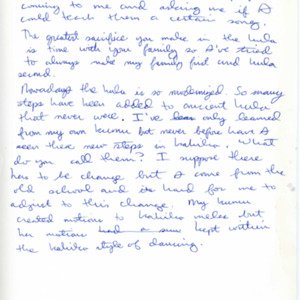 coming to me and asking me if I
could teach them a certain song.
The greatest sacrifice you make in the hula
is time with your family so I've tried
to always make my family first and hula
second.
Nowadays the hula is so modernized. So many
steps have been added to ancient hula
that never were. I've learned
from my own kumu but never before have I
seen these new steps in kahiko. What
do you call them? I suppose there
has to be change but I come from the
old school and its hard for me to
adjust to this change. My kumu
created motions to kahiko meles but
her motions kept within
the kahiko style of dancing.